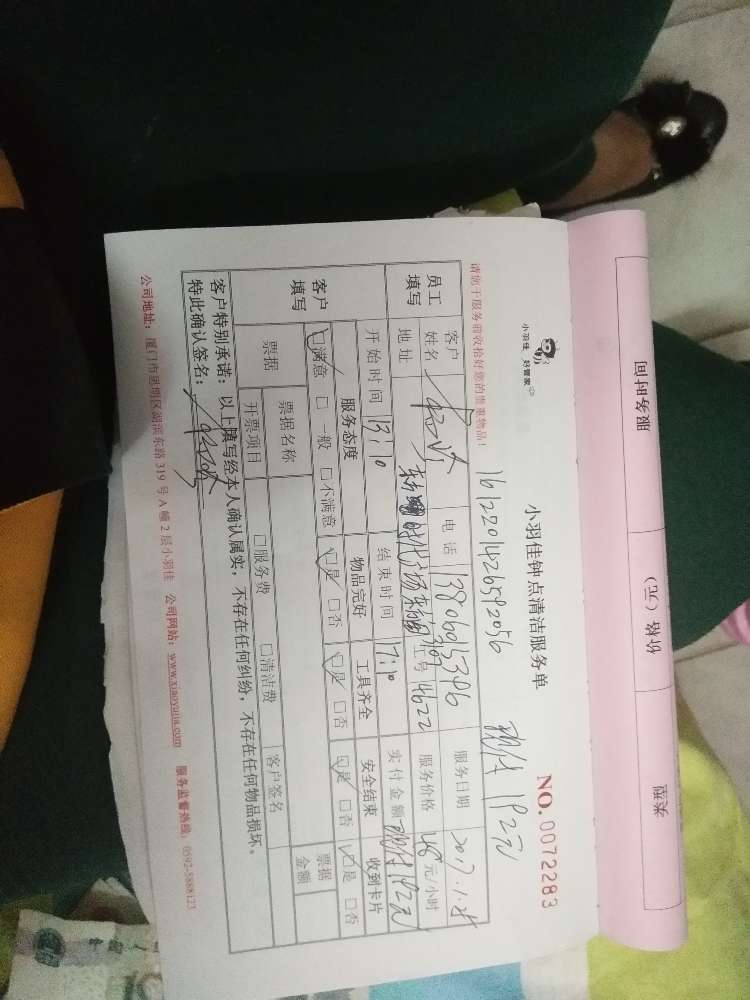 小羽佳 好管家
小羽佳钟点清洁服务单
NO.0072283
1612201426592056
现付 192元
请您于服务前收拾好您的贵重物品！
员工填写
客户姓名
电话 13806015396
服务日期 2017.1.21
地址
时代广场
工号 4622
服务价格 48 元/小时
开始时间 13:10
结束时间 17:10
实付金额 现付192元
客户填写
服务态度 物品完好 工具齐全 安全结束 收到卡片
☑满意 □一般 □不满意 ☑是 □否 ☑是 □否 ☑是 □否 ☑是 □否
票据 票据名称 票据金额
开票项目 □服务费 □清洁费 客户签名
客户特别承诺：以上填写经本人确认属实，不存在任何纠纷，不存在任何物品损坏。
特此确认签名：
公司地址：厦门市思明区湖滨东路 319 号 A 幢 2 层小羽佳 公司网站：www.xiaoyujia.com 服务监督热线：0592-5888123
服务时间 价格（元） 类型